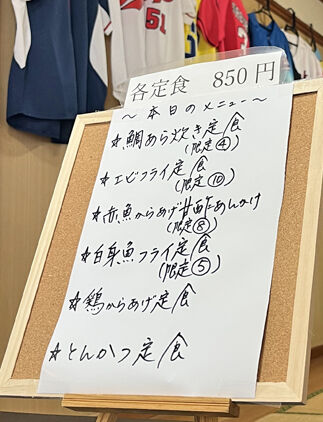 51
各定食 850円
～本日のメニュー～
☆鯛あら炊き定食
(限定④)
☆エビフライ定食
(限定⑩)
☆赤魚からあげ甘酢あんかけ
(限定⑧)
☆白身魚フライ定食
(限定⑤)
☆鶏からあげ定食
☆とんかつ定食